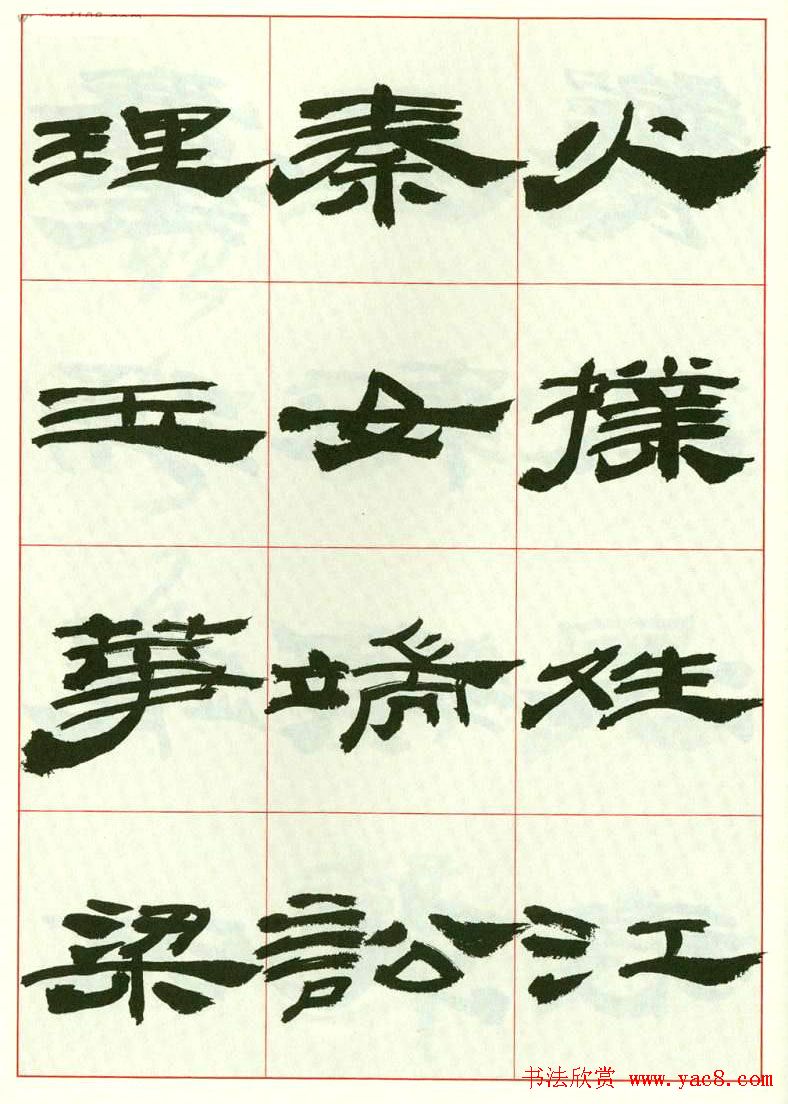 火撲姓江
秦女端訟
理華梁
书法欣赏 www.yac8.com